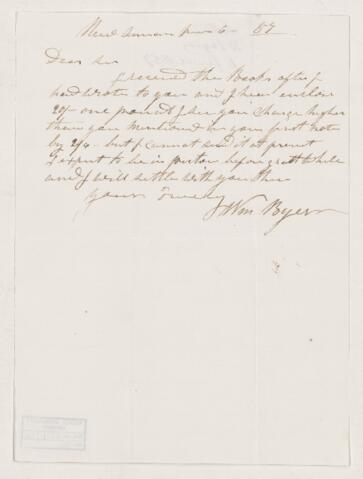 New June 6 57
Dear Sir
I received the Books after I
had wrote to you and I here enclose
20/- one pound I see you charge higher
than you mentioned in your first note
by 2/6 but I cannot send it at present
I expect to be in before great while
and I will settle with you then
yours Truely
Wm Byers